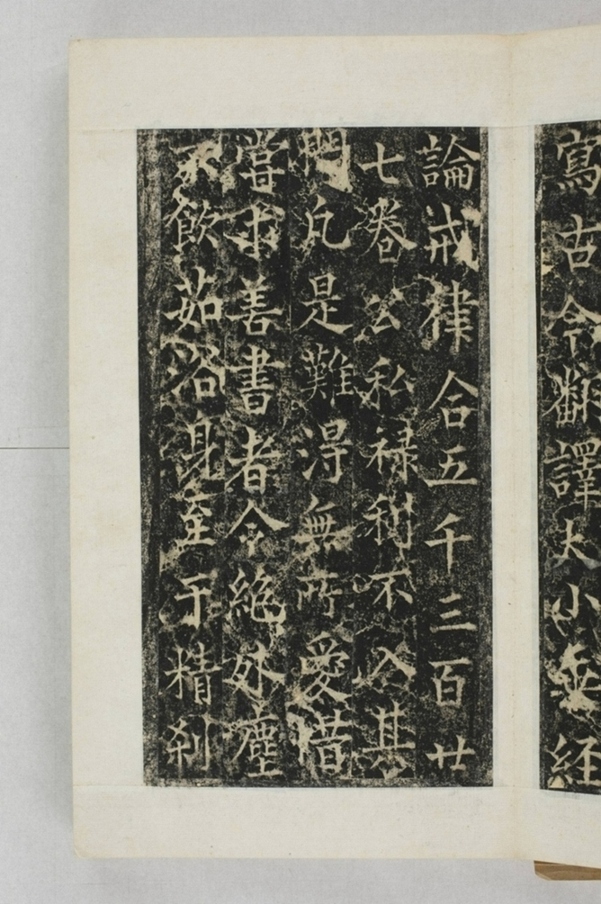 寫古今翻譯大小乘經
論戒律合五千三百廿
七卷公私祿利不入其
門凡是難得無所愛惜
嘗求善書者令絶外塵
不飲茹浴身至于精剎